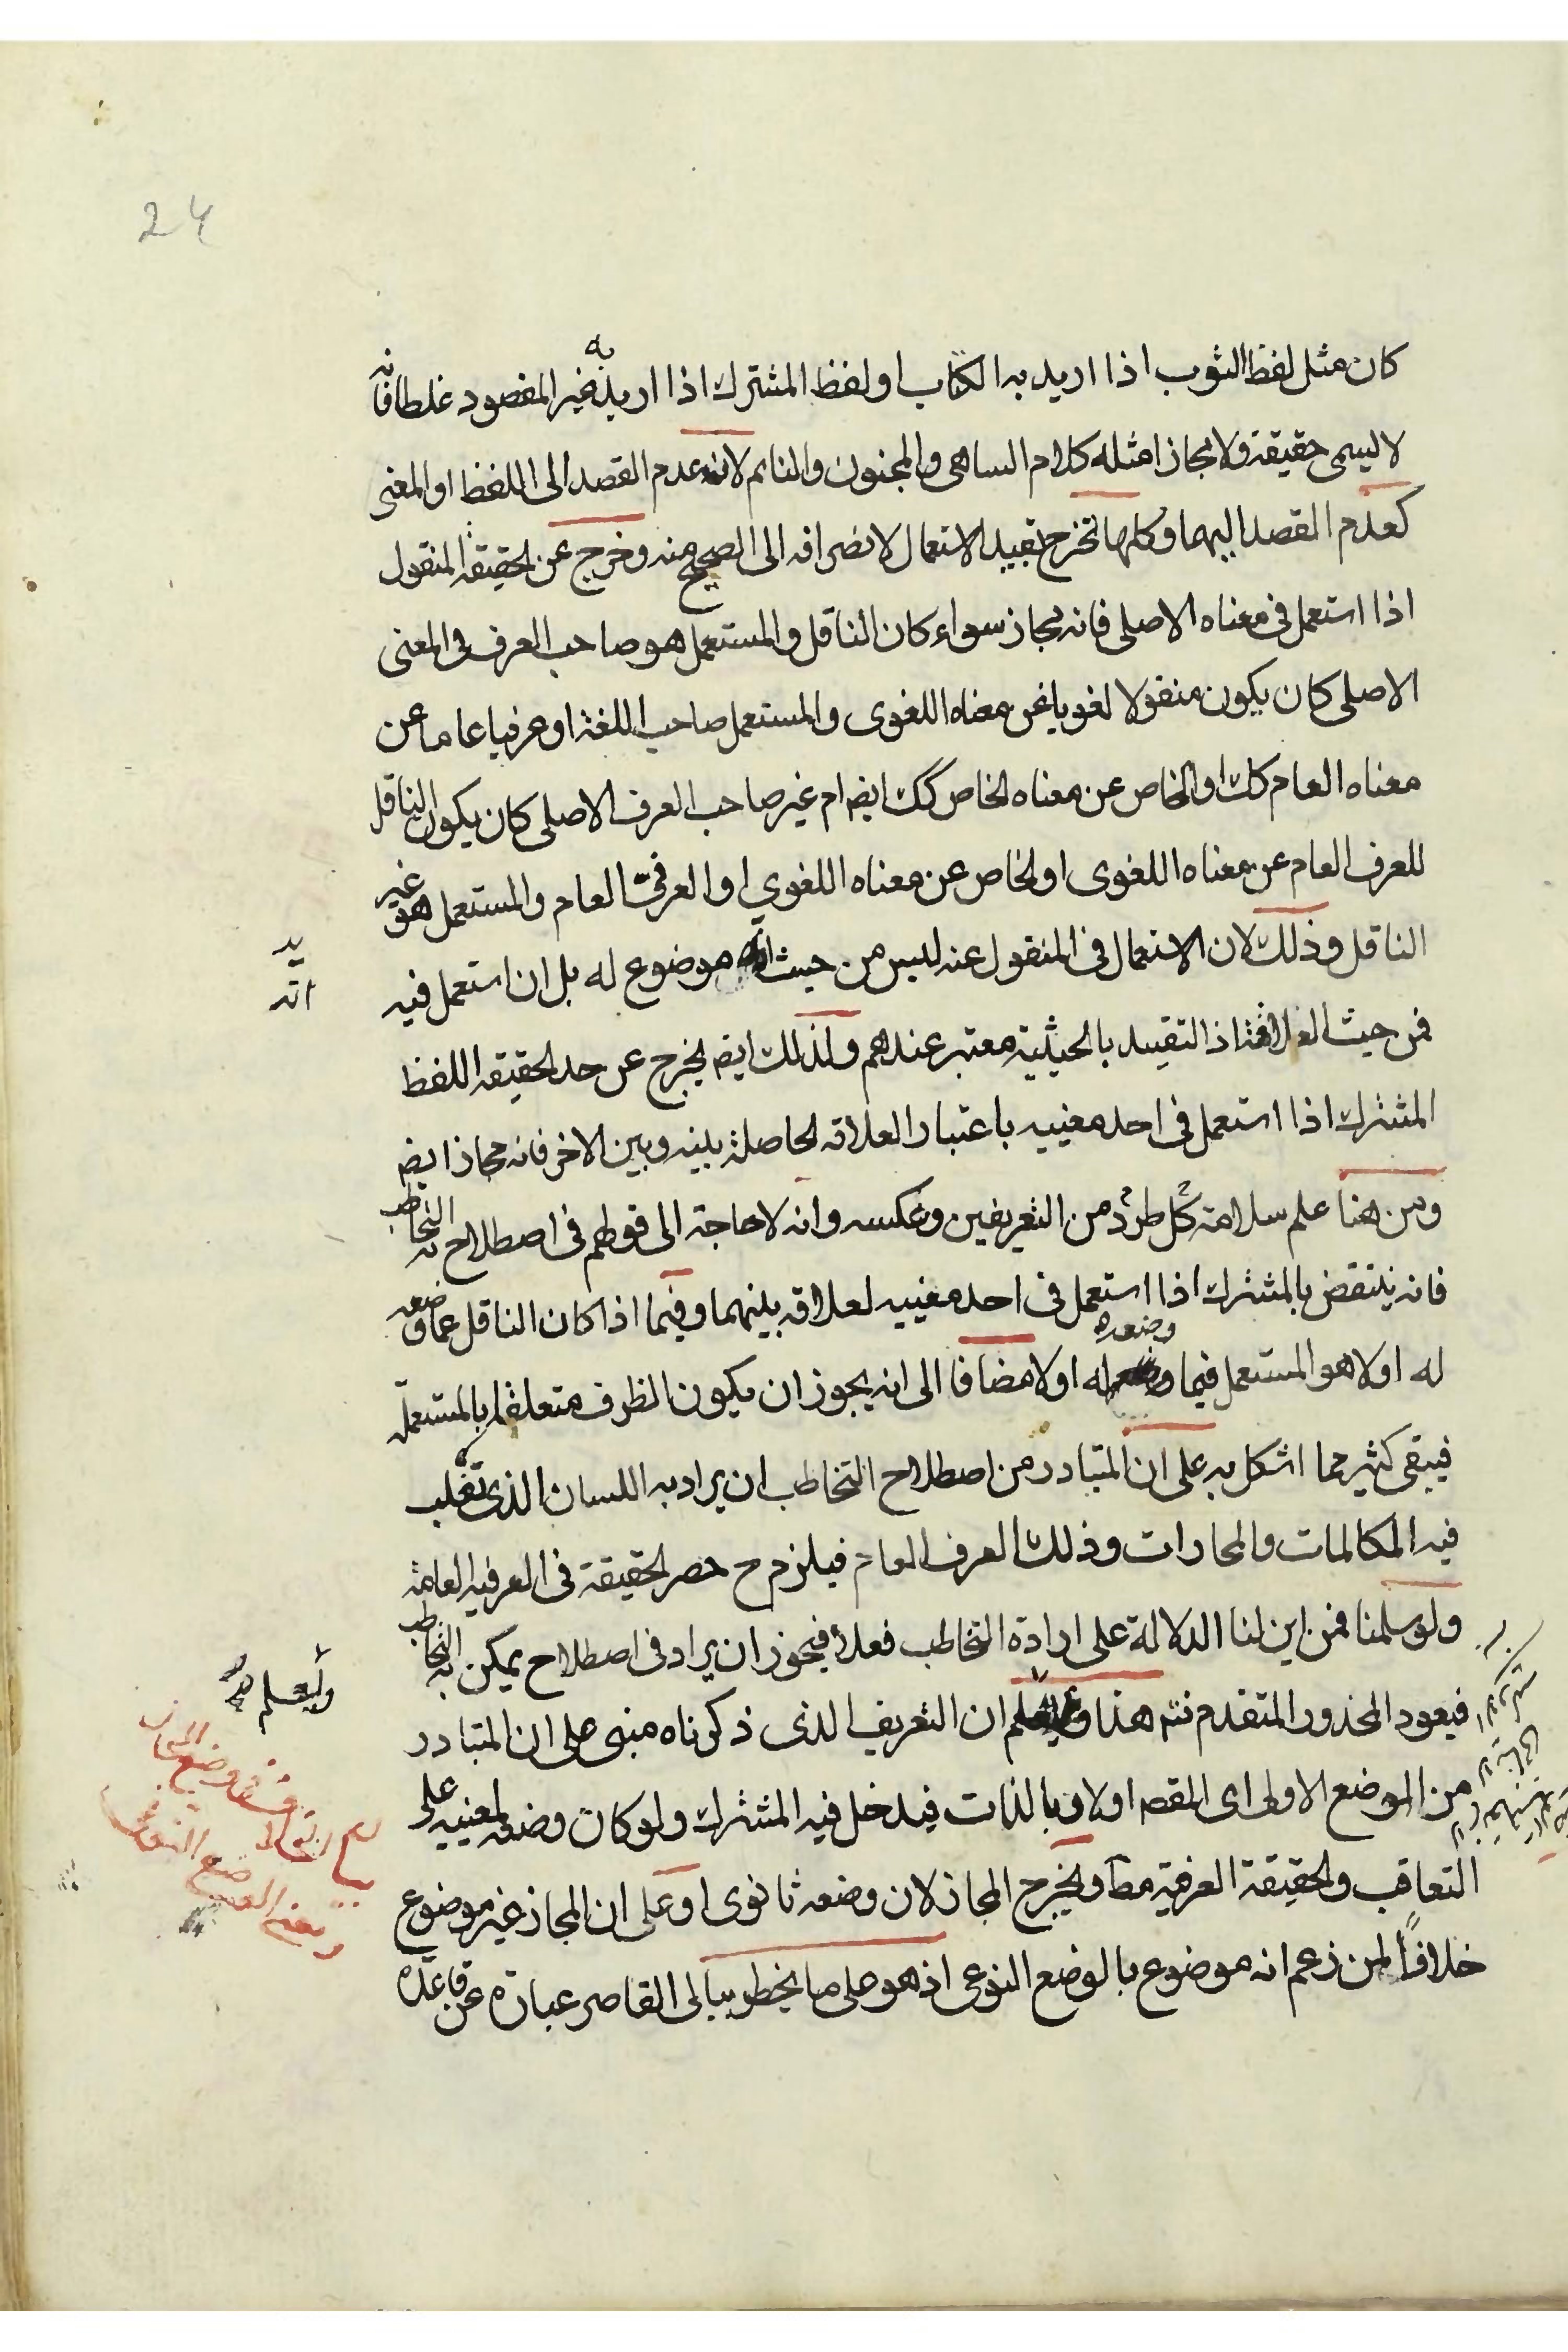 24
كان مثل لفظ الثوب اذا اريد به الكتاب او لفظ المشترك اذا اريد به غير المقصود غلطا فانه
لا ليسمى حقيقة ولا مجازا مثله كلام الساهى والمجنون والنائم لان عدم القصد الى اللفظ او المعنى
كعدم القصد اليهما وكلها تخرج بقيد الاستعمال لانصرافه الى الصحيح منه وخرج عن الحقيقة المنقول
اذا استعمل فى معناه الاصلى فانه مجاز سواء كان الناقل والمستعمل هو صاحب العرف فى المعنى
الاصلى كان يكون منقولا لغويا عن معناه اللغوى والمستعمل صاحب اللغة او عرفيا عاما عن
معناه العام كك او الخاص عن معناه الخاص كك ايضا ام غير صاحب العرف الاصلى كان يكون الناقل
للعرف العام عن معناه اللغوى او الخاص عن معناه اللغوي او العرفى العام والمستعمل هو غير
الناقل وذلك لان الاستعمال فى المنقول عنه ليس من حيث انه موضوع له بل ان استعمل فيه
فمن حيث العلاقة اذ التقييد بالحيثية معتبر عندهم ولذلك ايضا يخرج عن حد الحقيقة اللفظ
المشترك اذا استعمل فى احد معنييه باعتبار العلاقه الحاصلة بينه وبين الاخر فانه مجاز ايضا
ومن هنا علم سلامة كل طرد من التعريفين وعكسه وانه لا حاجة الى قولهم فى اصطلاح به التخاطب
فانه ينتقض بالمشترك اذا استعمل فى احد معنييه لعلاقه بينهما وفيما اذا كان الناقل عما وضعه
له اولا هو المستعمل فيما وضعه له اولا مضافا الى انه يجوز ان يكون الظرف متعلقا بالمستعملة
فيبقى كثير مما اشكل به على ان المتبادر من اصطلاح التخاطب ان يراد به اللسان الذى تغلب
فيه المكالمات والمحاورات وذلك العرف العام فيلزم ح حصر الحقيقة فى العرفيه العامة
ولو سلمنا فمن اين لنا الدلالة على ارادة التخاطب فعلا فيجوز ان يراد فى اصطلاح يمكن به التخاطب
فيعود المحذور المتقدم ثم هذا وليعلم ان التعريف الذى ذكرناه مبنى على ان المتبادر
من الموضع الاولى اى المقصه اولا وبالذات فيدخل فيه المشترك ولو كان وضعه لمعنييه على
التعاقب والحقيقة العرفية مطا ويخرج المجاز لان وضعه ثانوى او على ان المجاز غير موضوع
خلافًا لمن زعم انه موضوع بالوضع النوعى اذ هو على ما يخطر ببالى القاصر عبارة عن قاعدة
انه
وليعلم